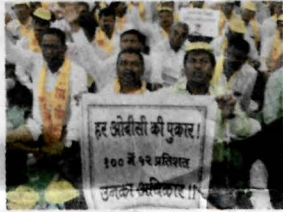 हर ओबीसी की पुकार!
१०० में ५२ प्रतिशत
उनका अधिकार!!